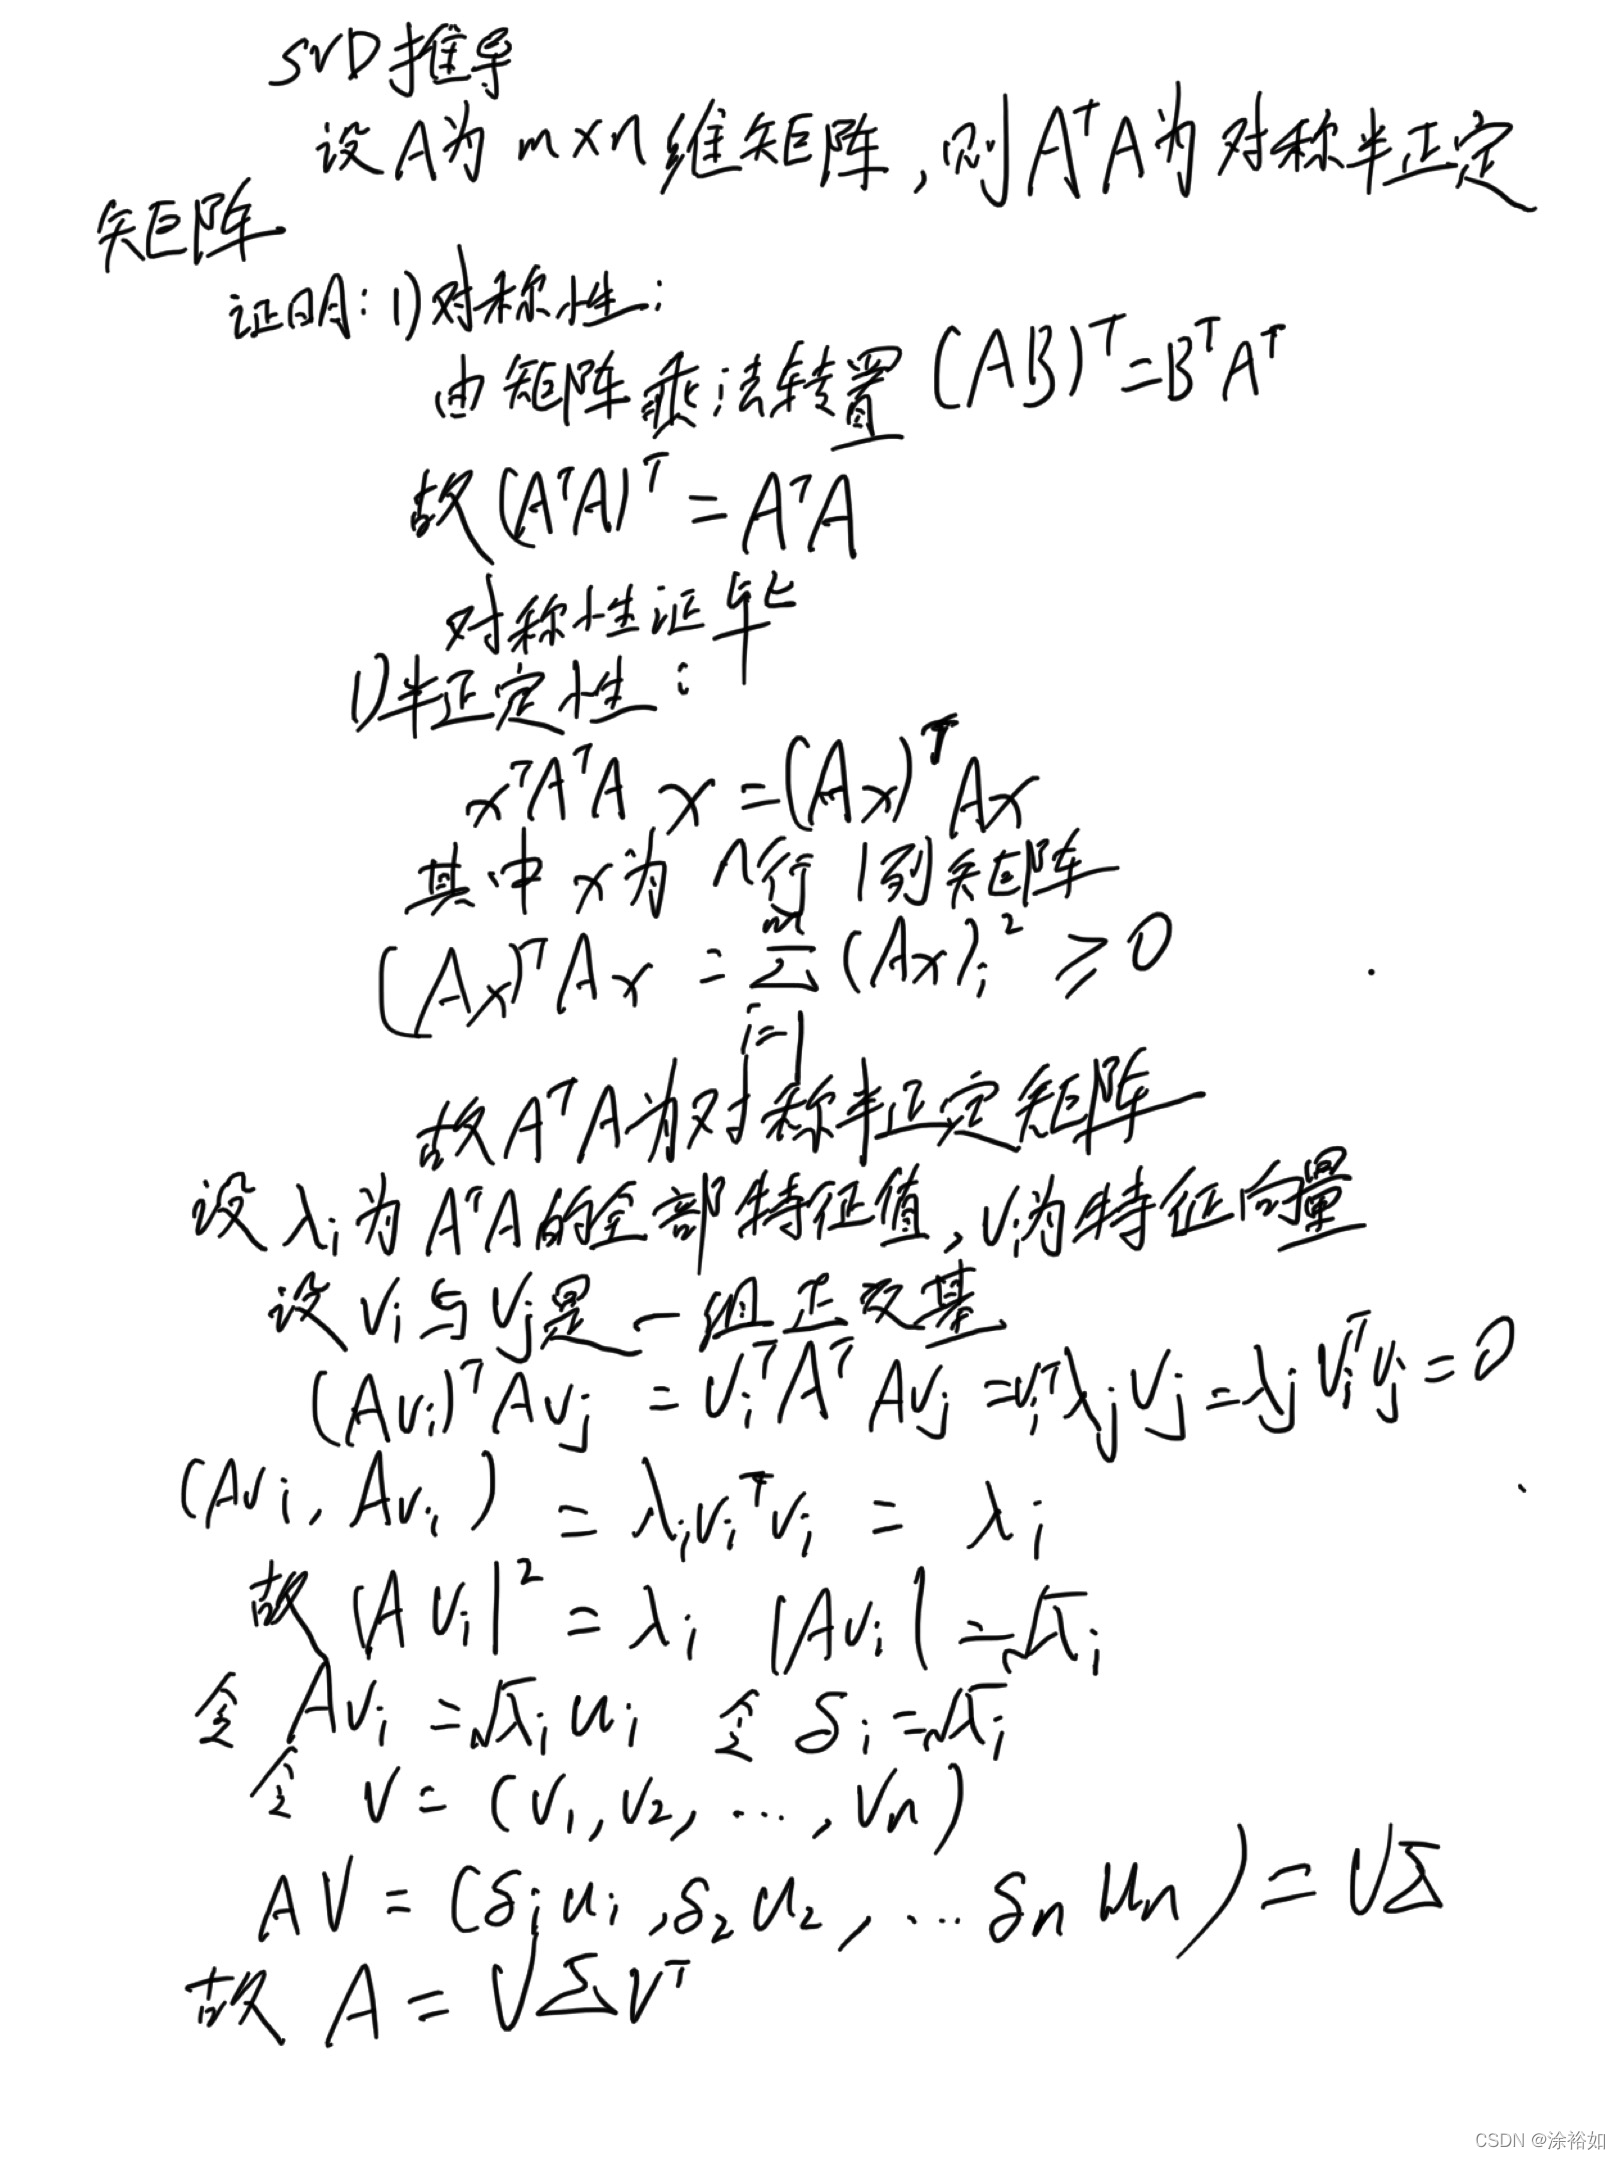 SVD推导
设A为m×n维矩阵,则AᵀA为对称半正定
矩阵
证明:1)对称性:
由矩阵乘法转置(AB)ᵀ=BᵀAᵀ
故(AᵀA)ᵀ=AᵀA
对称性证毕
1)半正定性:
xᵀAᵀAx=(Ax)ᵀAx
其中x为n行1列矩阵
(Ax)ᵀAx=∑_{i=1}^{m}(Ax)ᵢ²≥0
故AᵀA为对称半正定矩阵
设λᵢ为AᵀA的全部特征值,vᵢ为特征向量
设vᵢ与vⱼ是一组正交基
(Avᵢ)ᵀAvⱼ=vᵢᵀAᵀAvⱼ=vᵢᵀλⱼvⱼ=λⱼvᵢᵀvⱼ=0
(Avᵢ,Avᵢ)=λᵢvᵢᵀvᵢ=λᵢ
故|Avᵢ|²=λᵢ |Avᵢ|=√λᵢ
令Avᵢ=√λᵢuᵢ 令δᵢ=√λᵢ
令V=(v₁,v₂,...,vₙ)
AV=(δᵢuᵢ,δ₂u₂,...δₙuₙ)=U∑
故A=U∑Vᵀ
CSDN @涂裕如